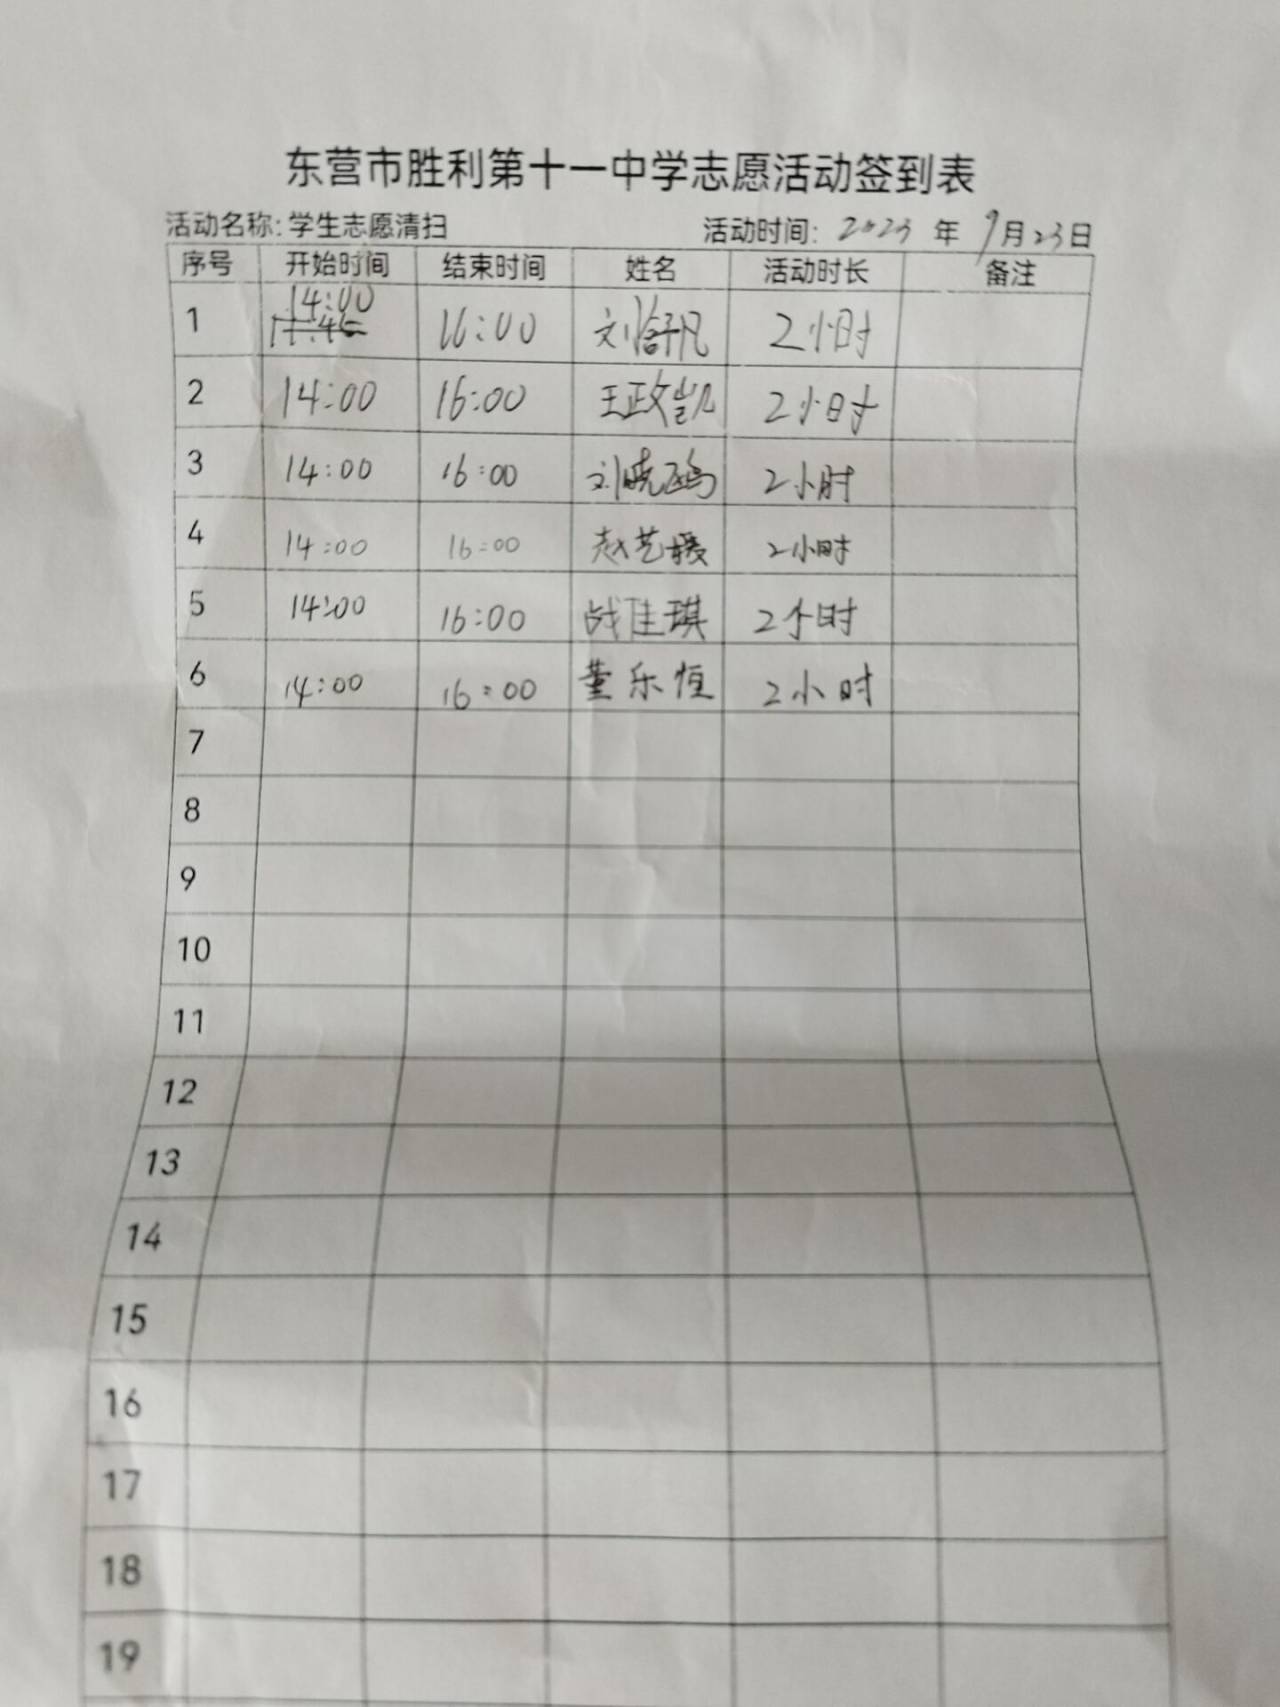 东营市胜利第十一中学志愿活动签到表
活动名称：学生志愿清扫 活动时间：2023 年 9月23日
序号 开始时间 结束时间 姓名 活动时长 备注
14:00
1 16:00 刘舒凡 2小时
2 14:00 16:00 王政凯 2小时
3 14:00 16:00 刘晓 2小时
4 14:00 16:00 赵艺媛 2小时
5 14:00 16:00 战佳琪 2小时
6 14:00 16:00 董乐恒 2小时
7
8
9
10
11
12
13
14
15
16
17
18
19